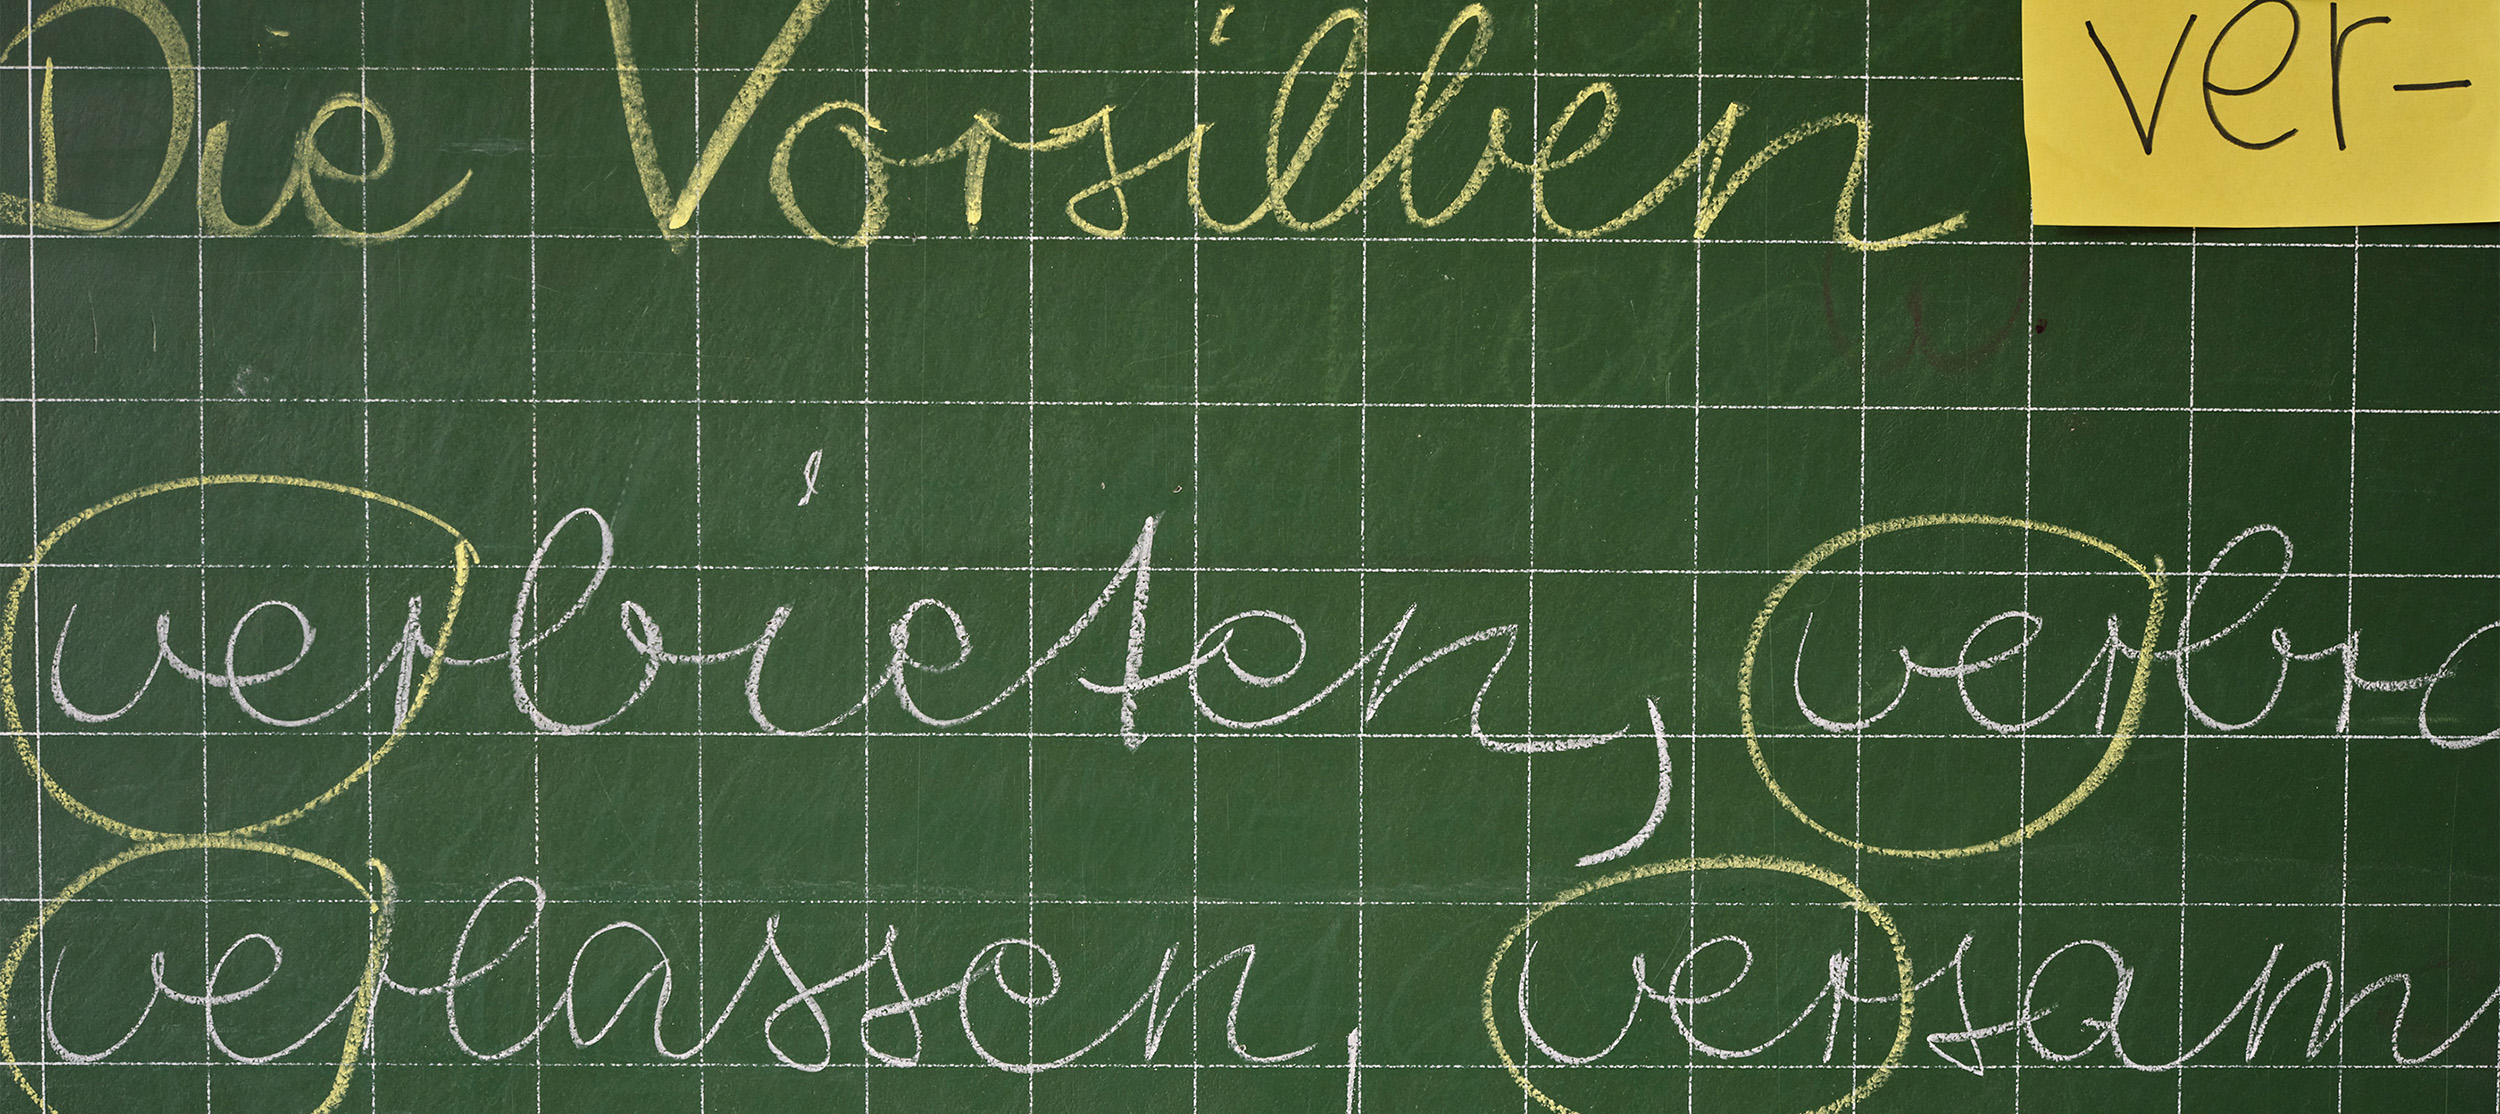 Die Vorsilben ver-
verbieten, verbr
verlassen, versam